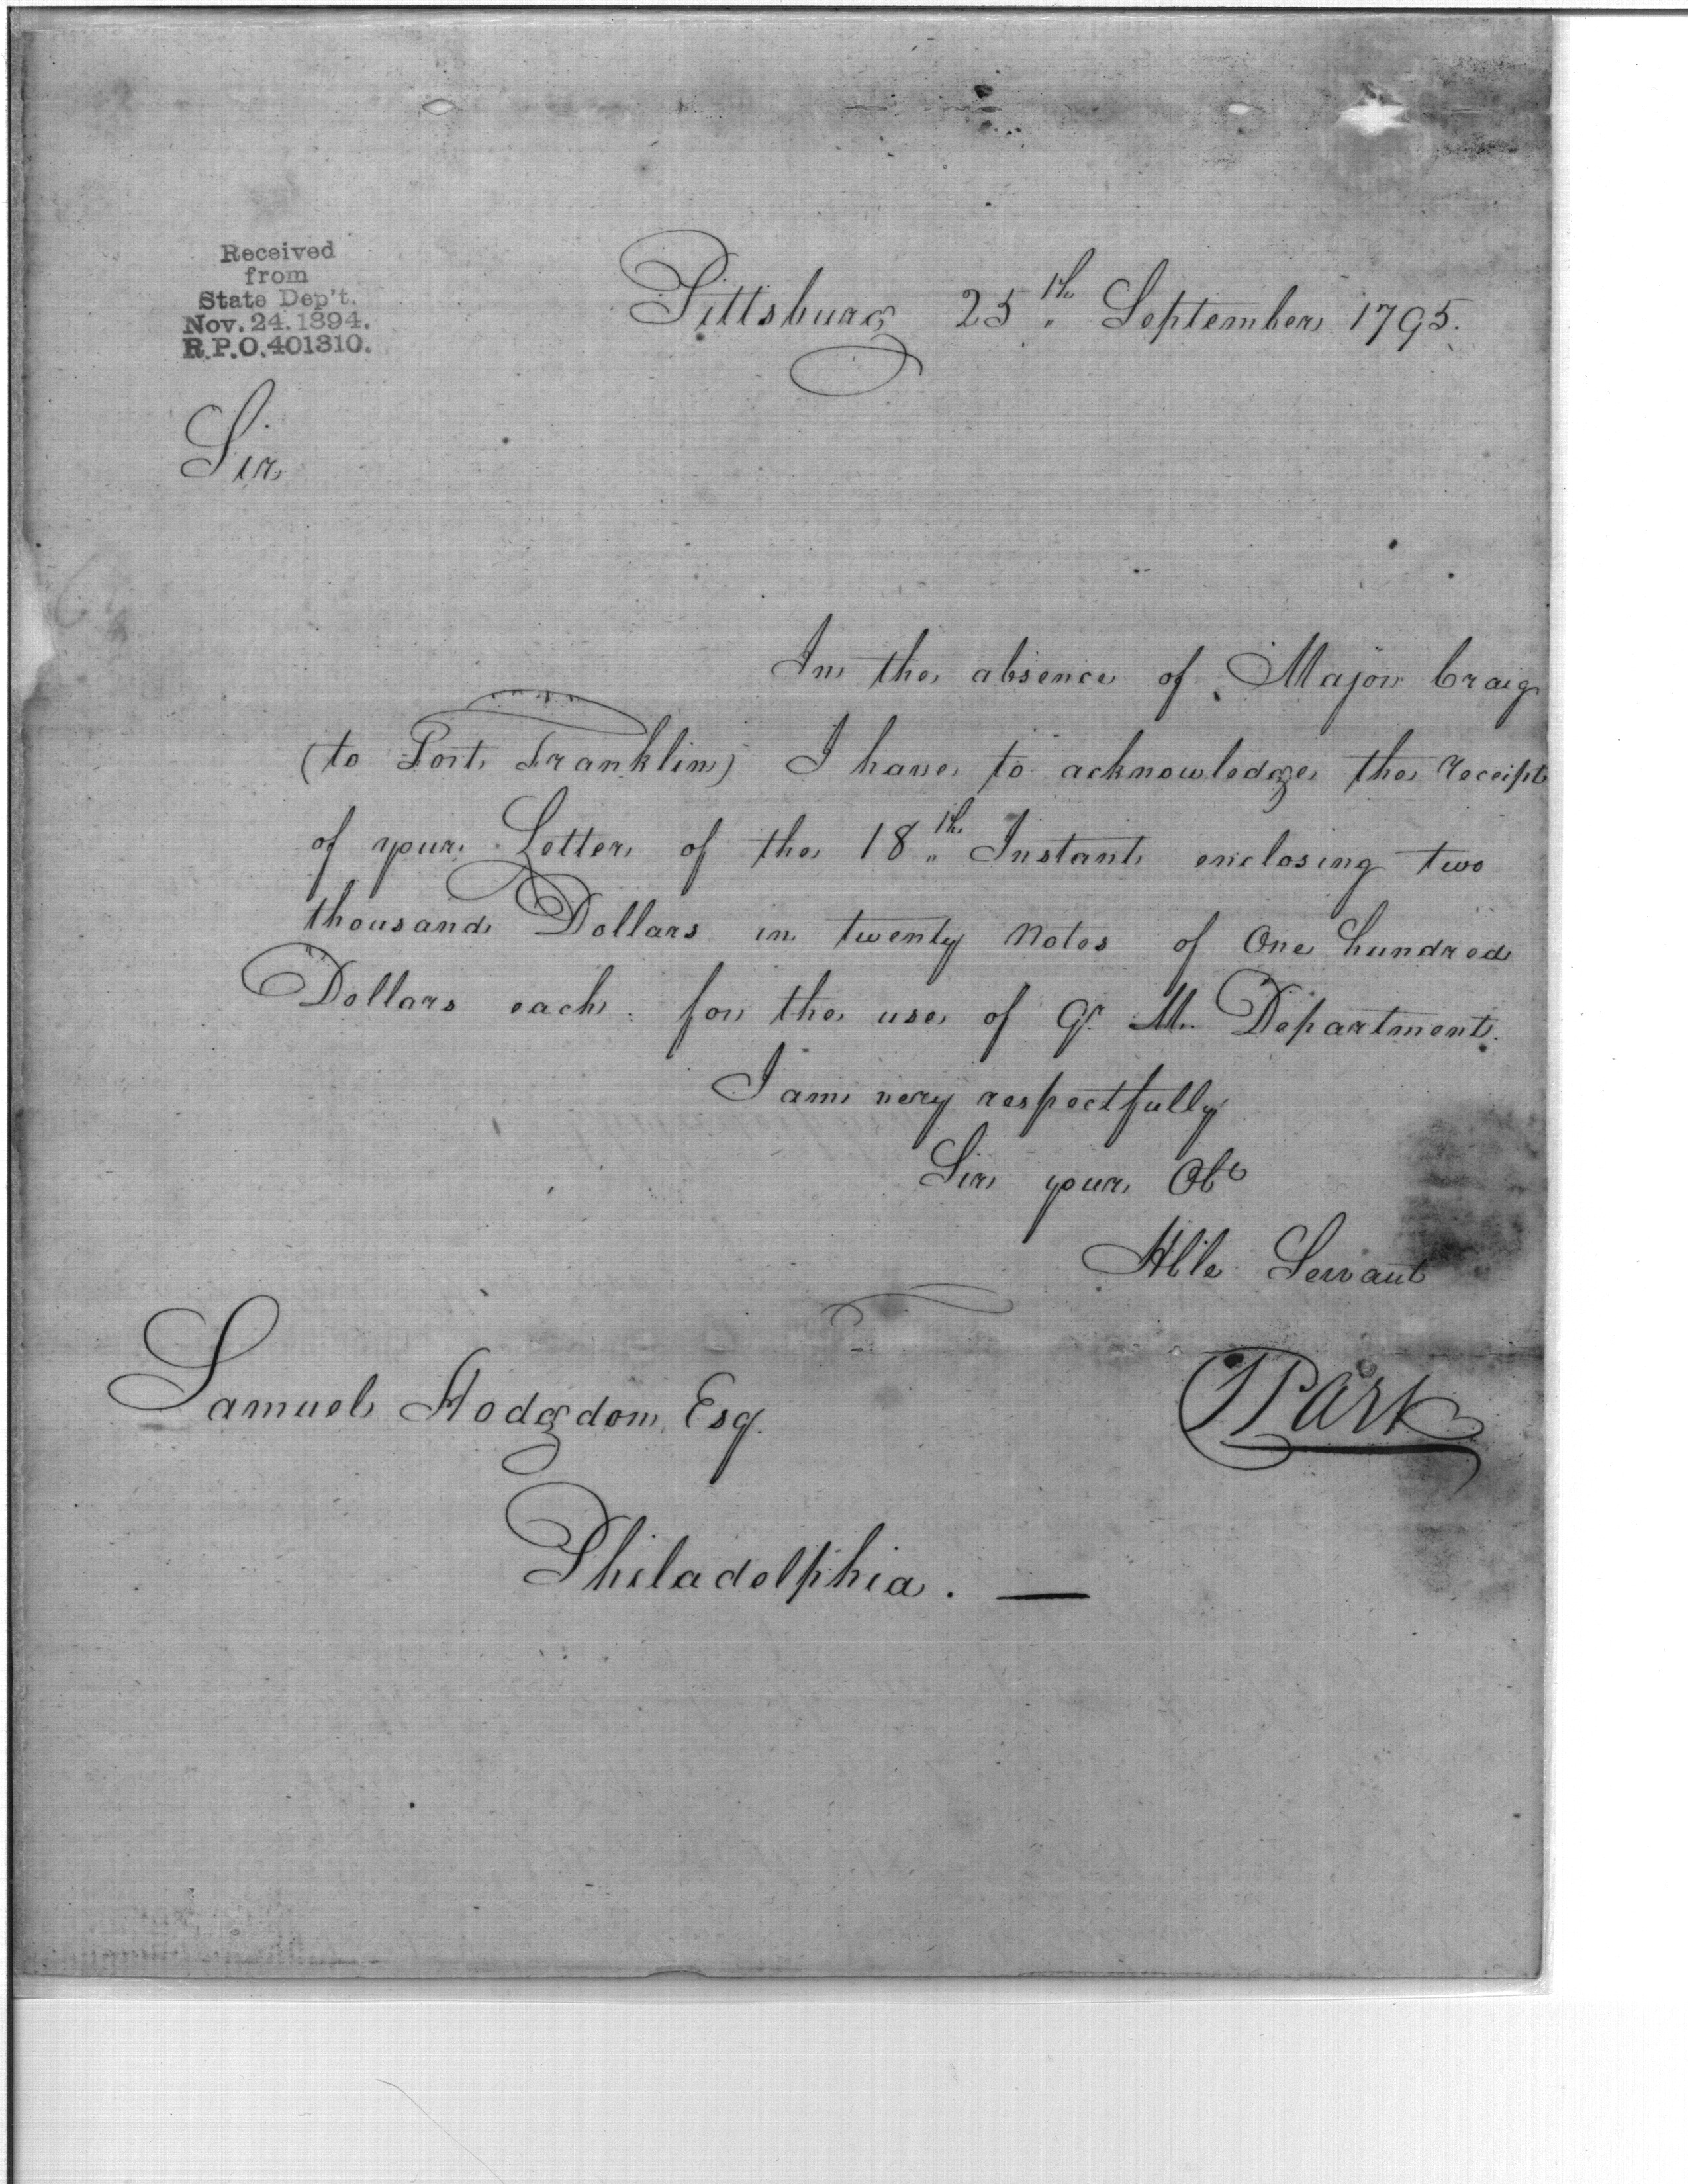 Received
from
State Dep't.
Nov. 24. 1894.
R.P.O. 401310.
Pittsburg 25th. September 1795.
Sir
In the absence of Major Craig
(to Fort Franklin) I have to acknowledge the receipt
of your Letter of the 18th. Instant enclosing two
thousand Dollars in twenty Notes of One hundred
Dollars each for the use of Qr. M. Department.
I am very respectfully
Sir your Obt
Hble Servant
Samuel Hodgdon Esq.
Philadelphia. —